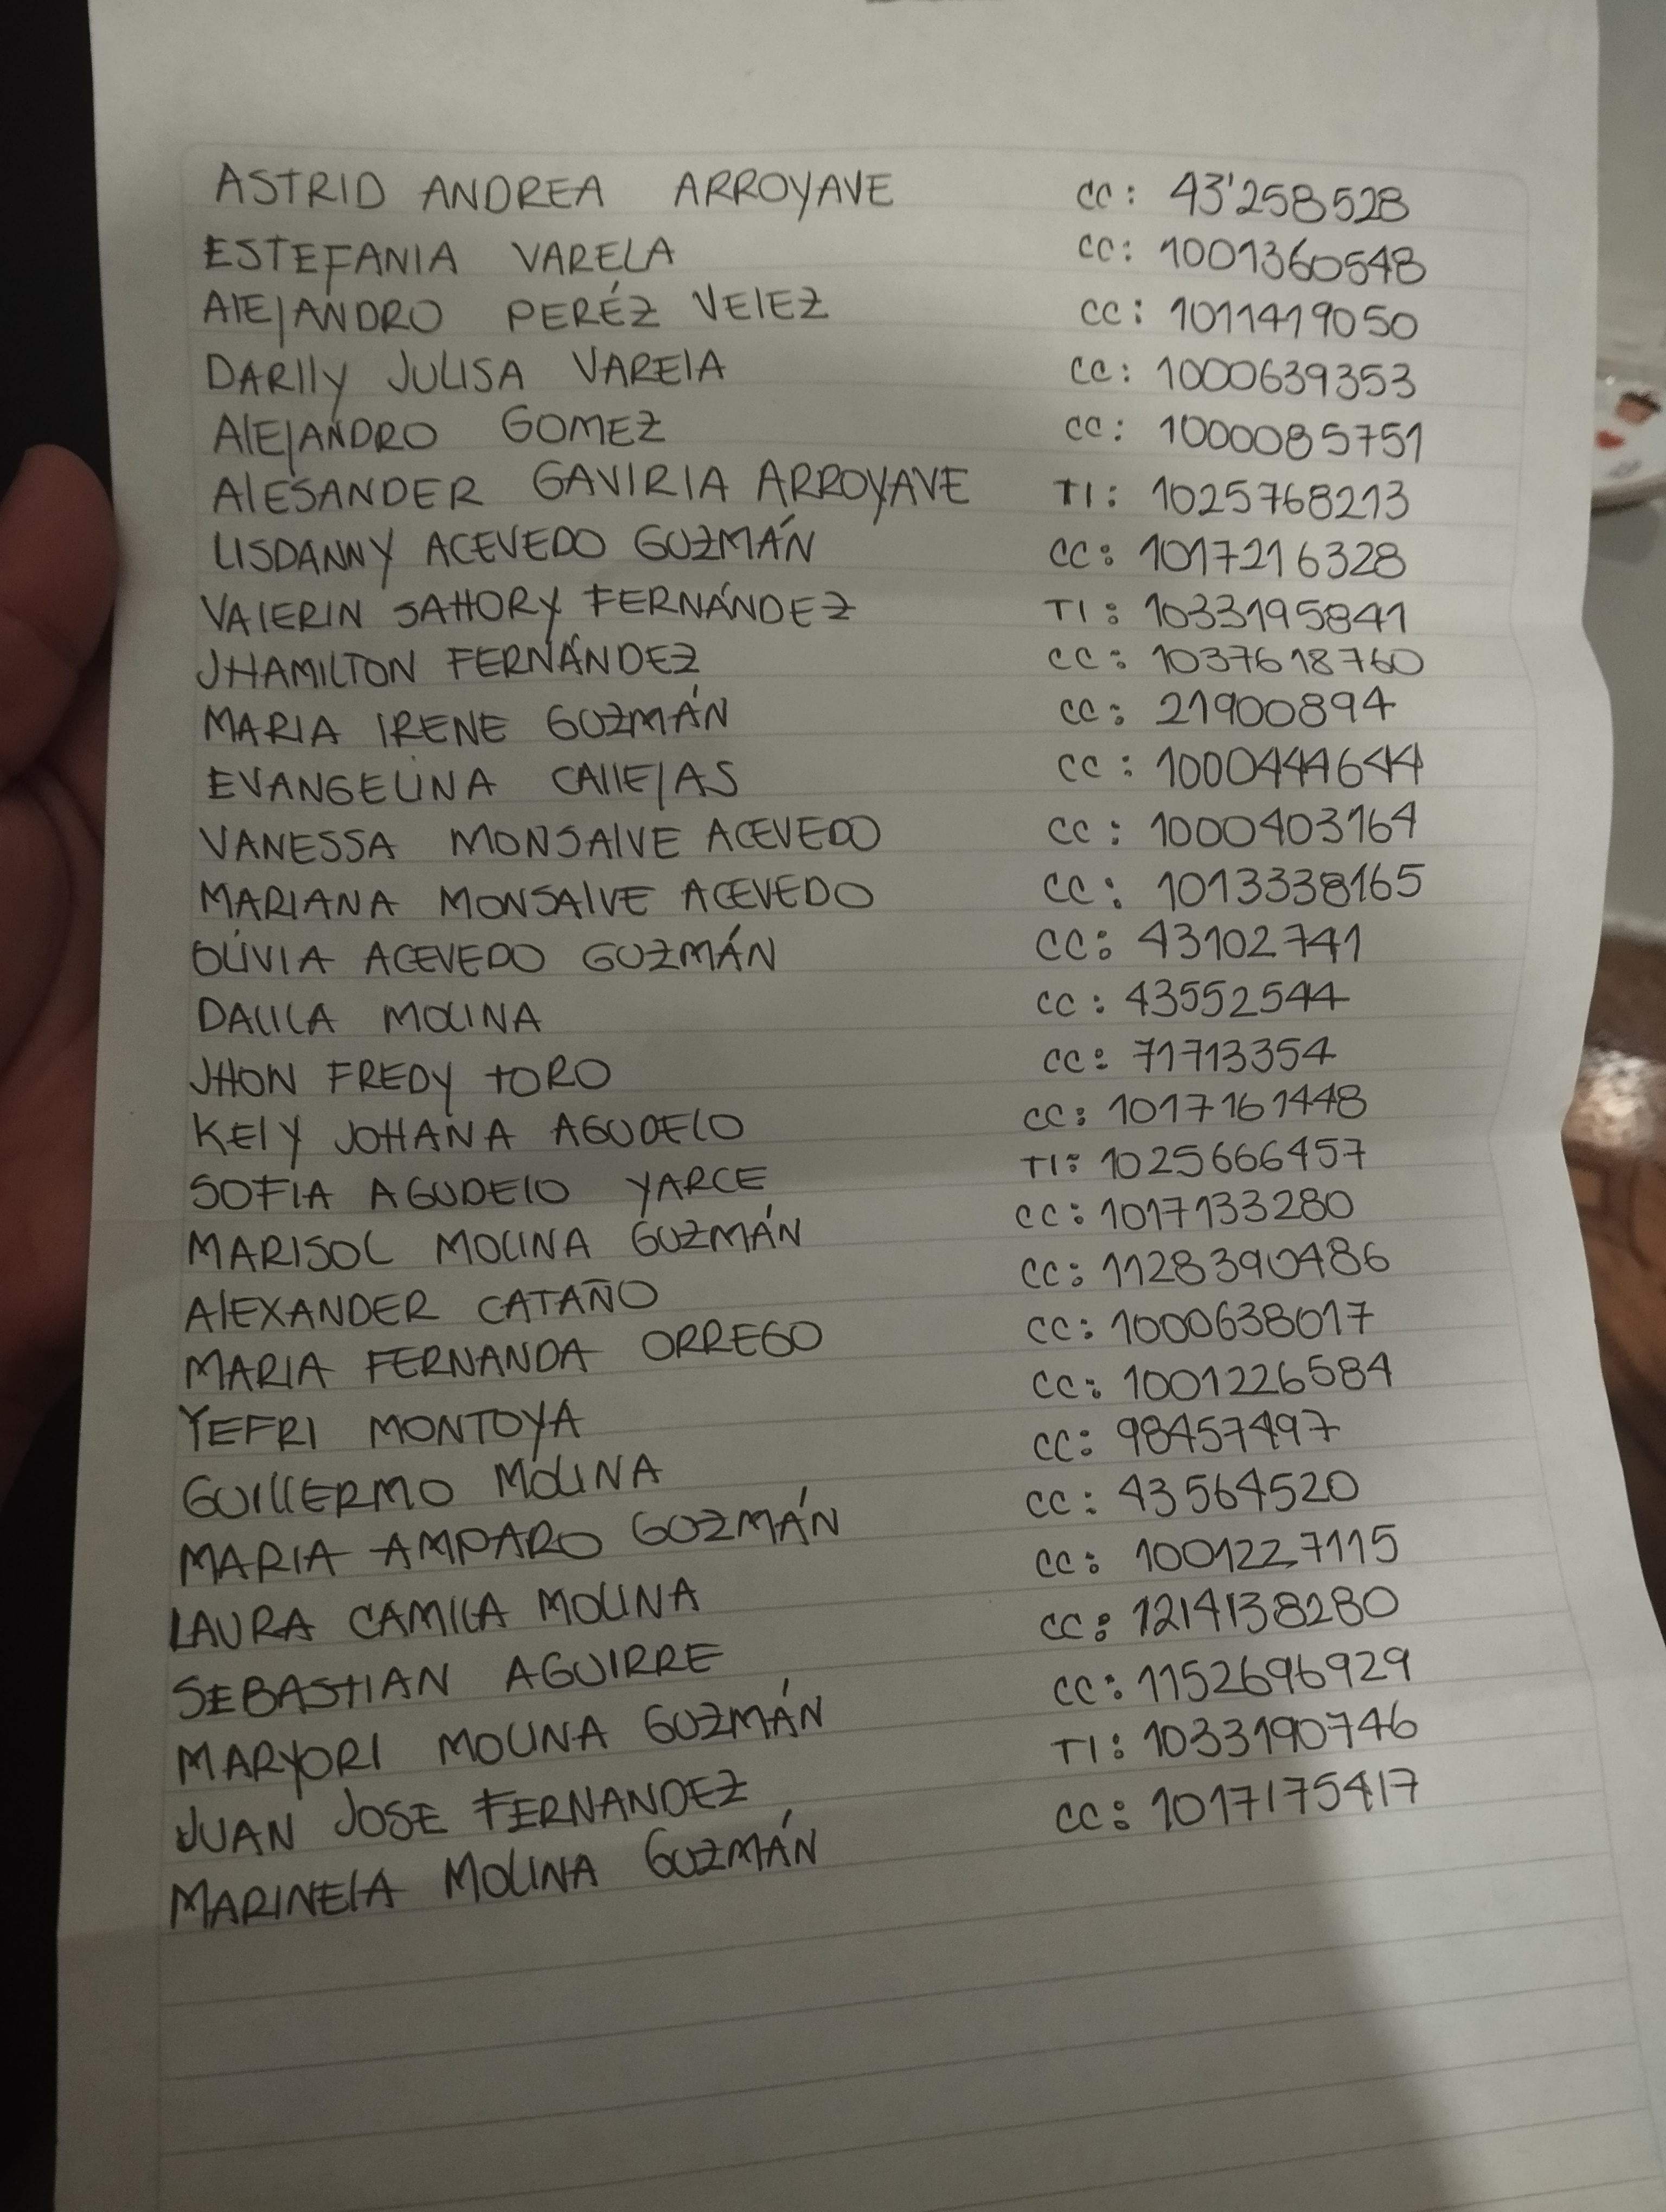 ASTRID ANDREA ARROYAVE CC: 43'258528
ESTEFANIA VARELA CC: 1001360548
AlEJANDRO PERÉZ VElEZ CC: 1011419050
DARIlY JULISA VARElA CC: 1000639353
AlEJANDRO GOMEZ CC: 1000085751
AlESANDER GAVIRIA ARROYAVE TI: 1025768213
LISDANNY ACEVEDO GUZMÁN CC: 1017216328
VAlERIN SAHORY FERNÁNDEZ TI: 1033195841
JHAMILTON FERNÁNDEZ CC: 1037618760
MARIA IRENE GUZMÁN CC: 21900894
EVANGELINA CAllEJAS CC: 1000444644
VANESSA MONSAlVE ACEVEDO CC: 1000403164
MARIANA MONSAlVE ACEVEDO CC: 1013338165
OLIVIA ACEVEDO GUZMÁN CC: 43102741
DALILA MOLINA CC: 43552544
JHON FREDY TORO CC: 71713354
KElY JOHANA AGUDELO CC: 1017161448
SOFIA AGUDElO YARCE TI: 1025666457
MARISOL MOLINA GUZMÁN CC: 1017133280
AlEXANDER CATAÑO CC: 1128390486
MARIA FERNANDA ORREGO CC: 1000638017
YEFRI MONTOYA CC: 1001226584
GUILLERMO MOLINA CC: 98457497
MARIA AMPARO GUZMÁN CC: 43564520
LAURA CAMILA MOLINA CC: 1001227115
SEBASTIAN AGUIRRE CC: 1214138280
MARYORI MOLINA GUZMÁN CC: 1152696929
JUAN JOSE FERNANDEZ TI: 1033190746
MARINElA MOLINA GUZMÁN CC: 1017175417